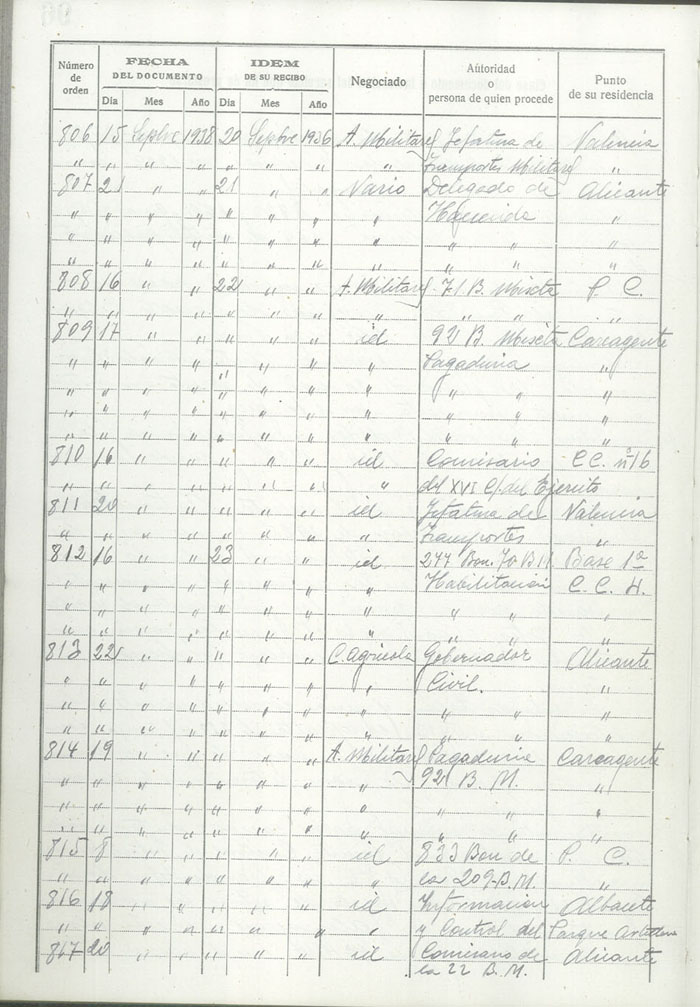 Número de orden FECHA DEL DOCUMENTO IDEM DE SU RECIBO Negociado Autoridad o persona de quien procede Punto de su residencia
Día Mes Año Día Mes Año
806 15 Septbre 1938 20 Septbre 1936 A. Militares Jefatura de Valencia
" " " " " " " " Transportes Militares "
807 21 " " 21 " " Vario Delegado de Alicante
" " " " " " " " Hacienda "
" " " " " " " " " " "
" " " " " " " " " " "
808 16 " " 22 " " A. Militares 71 B. Mixta P. C.
" " " " " " " " " " "
809 17 " " " " " id 92 B. Mixta Carcagente
" " " " " " " " Pagaduria "
" " " " " " " " " " "
" " " " " " " " " " "
" " " " " " " " " " "
810 16 " " " " " id Comisario C.C. nº 16
" " " " " " " " del XVI C. del Ejercito
811 20 " " " " " id Jefatura de Valencia
" " " " " " " " Transportes "
812 16 " " 23 " " id 277 Bon. 70 B M Base 1ª
" " " " " " " " Habilitacion C. C. H.
" " " " " " " " " " "
" " " " " " " " " " "
813 22 " " " " " C. Agricola Gobernador Alicante
" " " " " " " " Civil. "
" " " " " " " " " " "
" " " " " " " " " " "
814 19 " " " " " A. Militares Pagaduria Carcagente
" " " " " " " 92 B. M. "
" " " " " " " " " " "
" " " " " " " " " " "
815 8 " " " " " id 833 Bon de P. C.
" " " " " " " " la 209-B.M. "
816 18 " " " " " id Informacion Albacete
" " " " " " " " y Control del Parque
817 20 " " " " " id Comisario de Alicante
la 22 B. M.